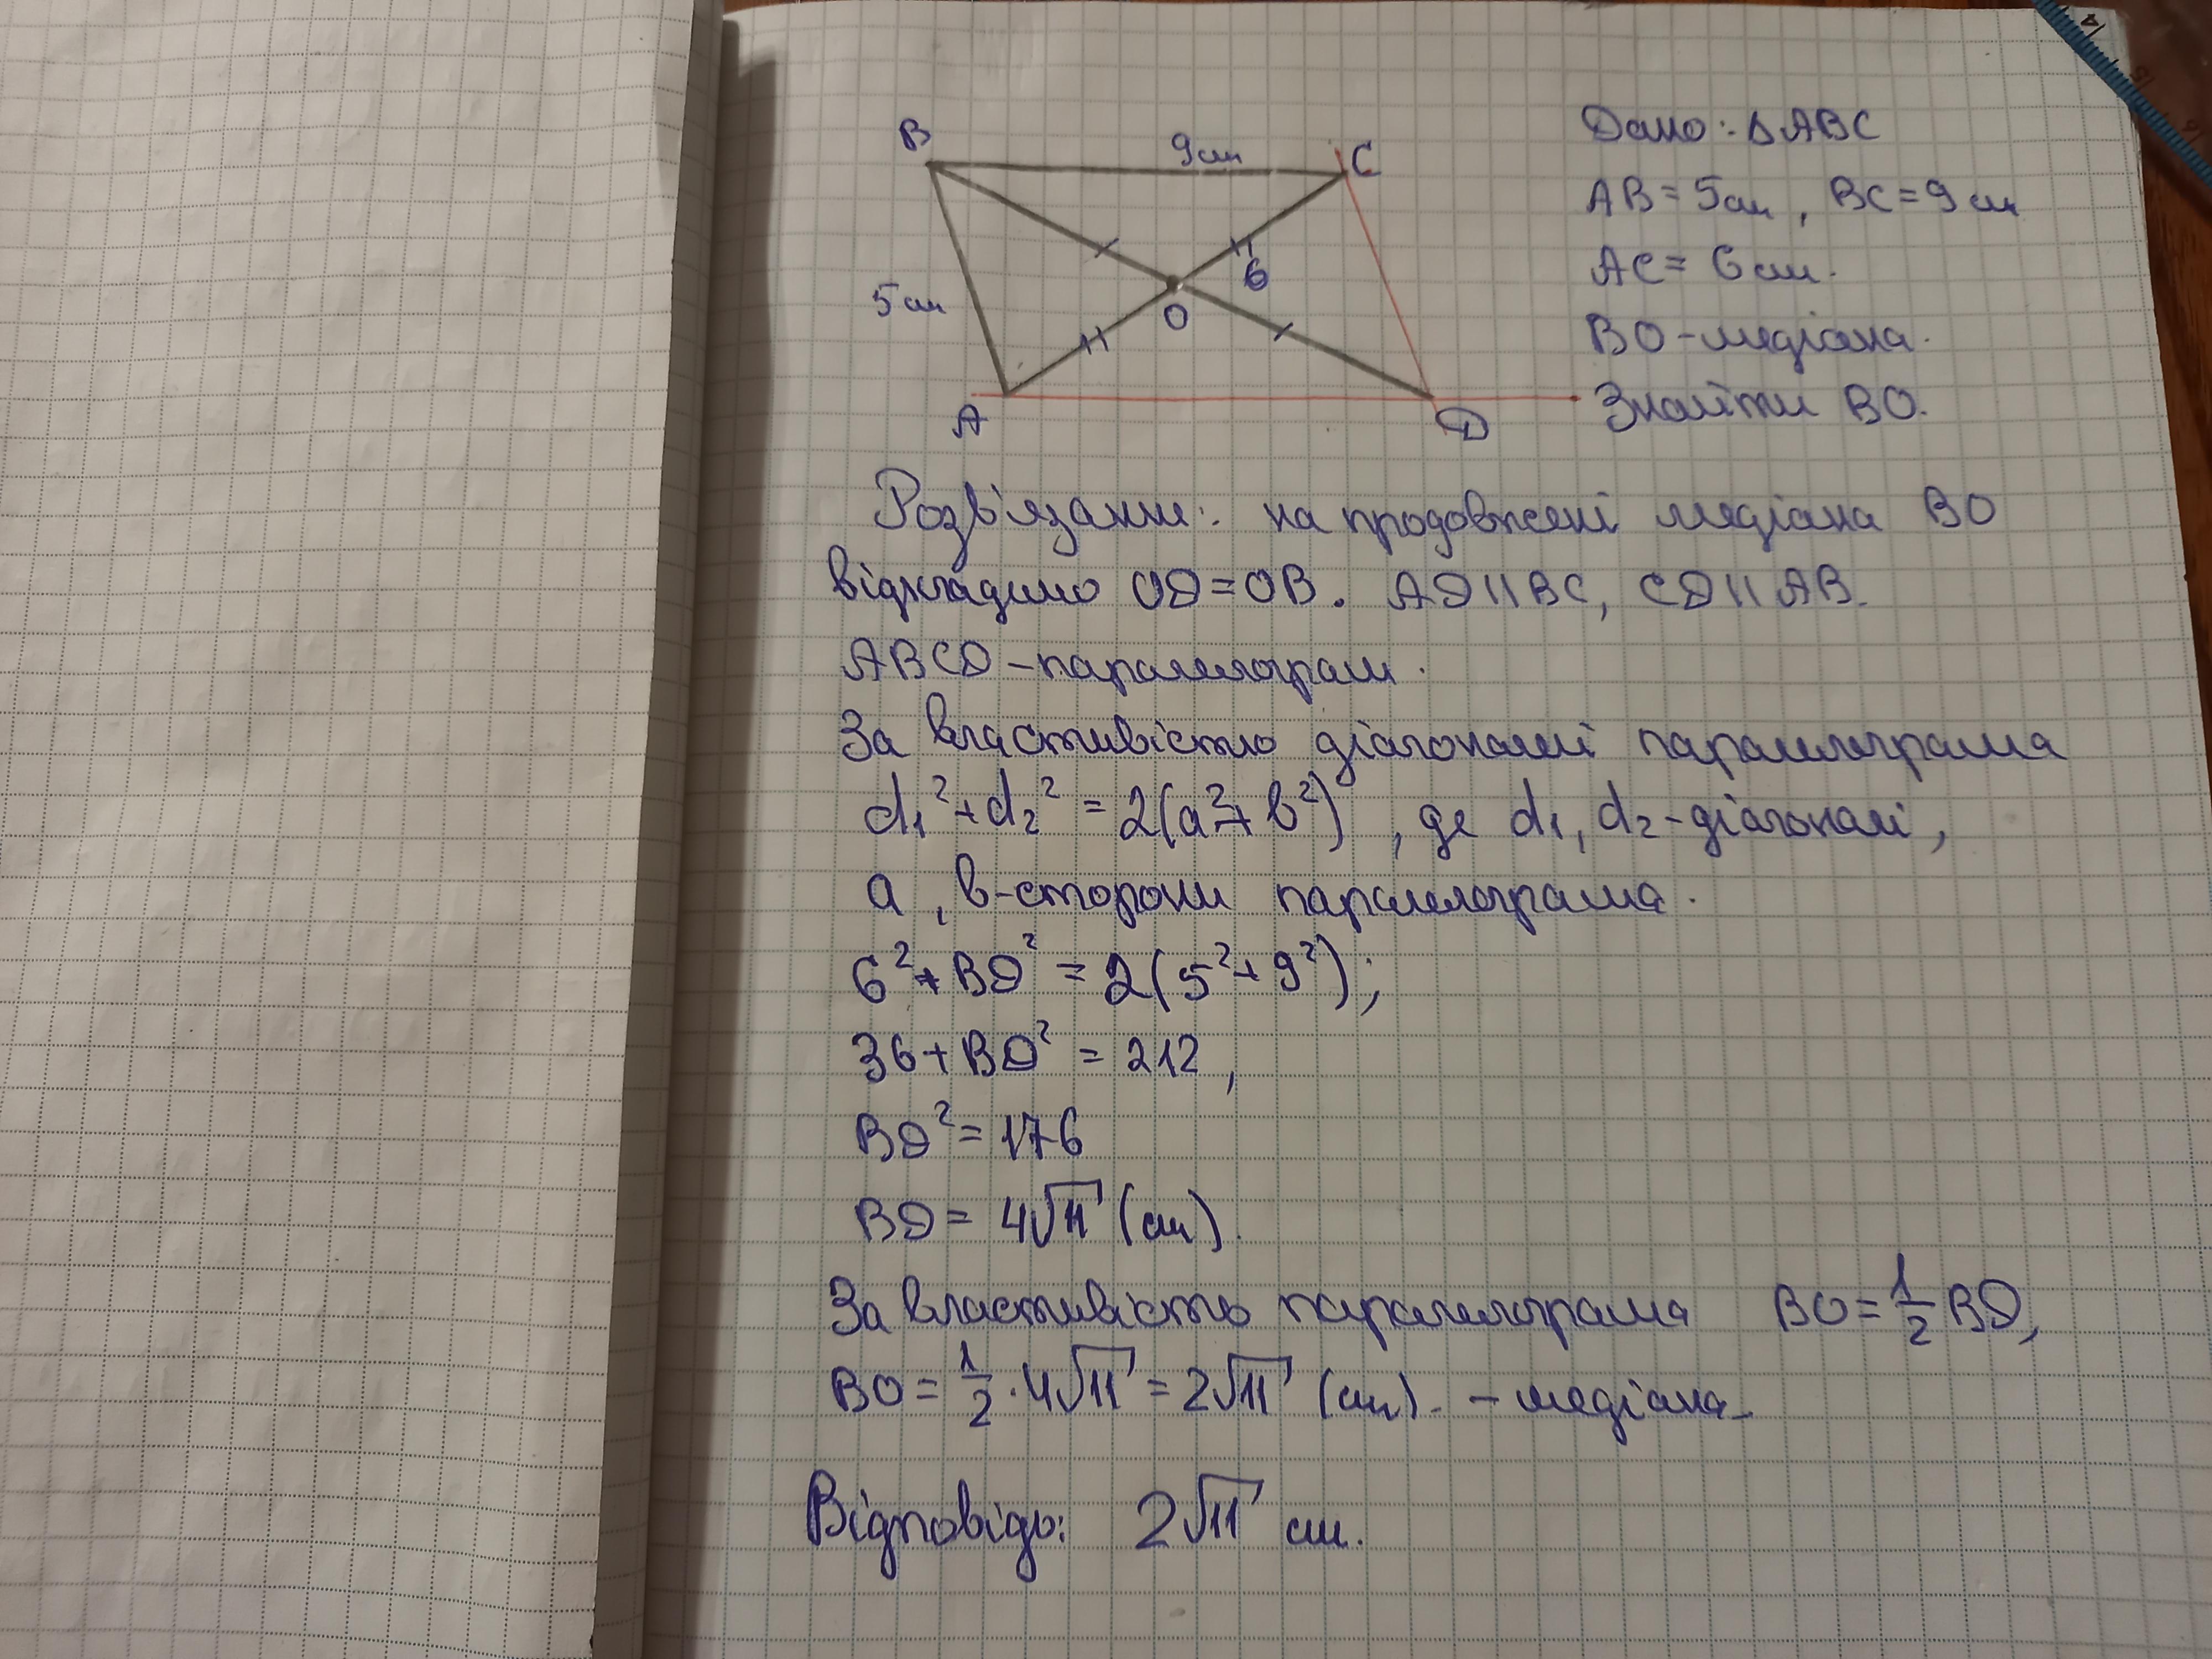 B
9см
C
5см
6
O
A
D
Дано: ΔABC
AB = 5см, BC = 9 см
AC = 6 см.
BO - медіана.
Знайти BO.
Розв'язання: на продовжені медіана BO
відкладимо OD = OB. AD || BC, CD || AB.
ABCD - паралелограм.
За властивістю діагоналей паралелограма
d₁² + d₂² = 2(a² + b²), де d₁, d₂ - діагоналі,
a, b - сторони паралелограма.
6² + BD² = 2(5² + 9²);
36 + BD² = 212,
BD² = 176
BD = 4√11 (см).
За властивістю паралелограма BO = 1/2 BD,
BO = 1/2 · 4√11 = 2√11 (см). - медіана.
Відповідь: 2√11 см.